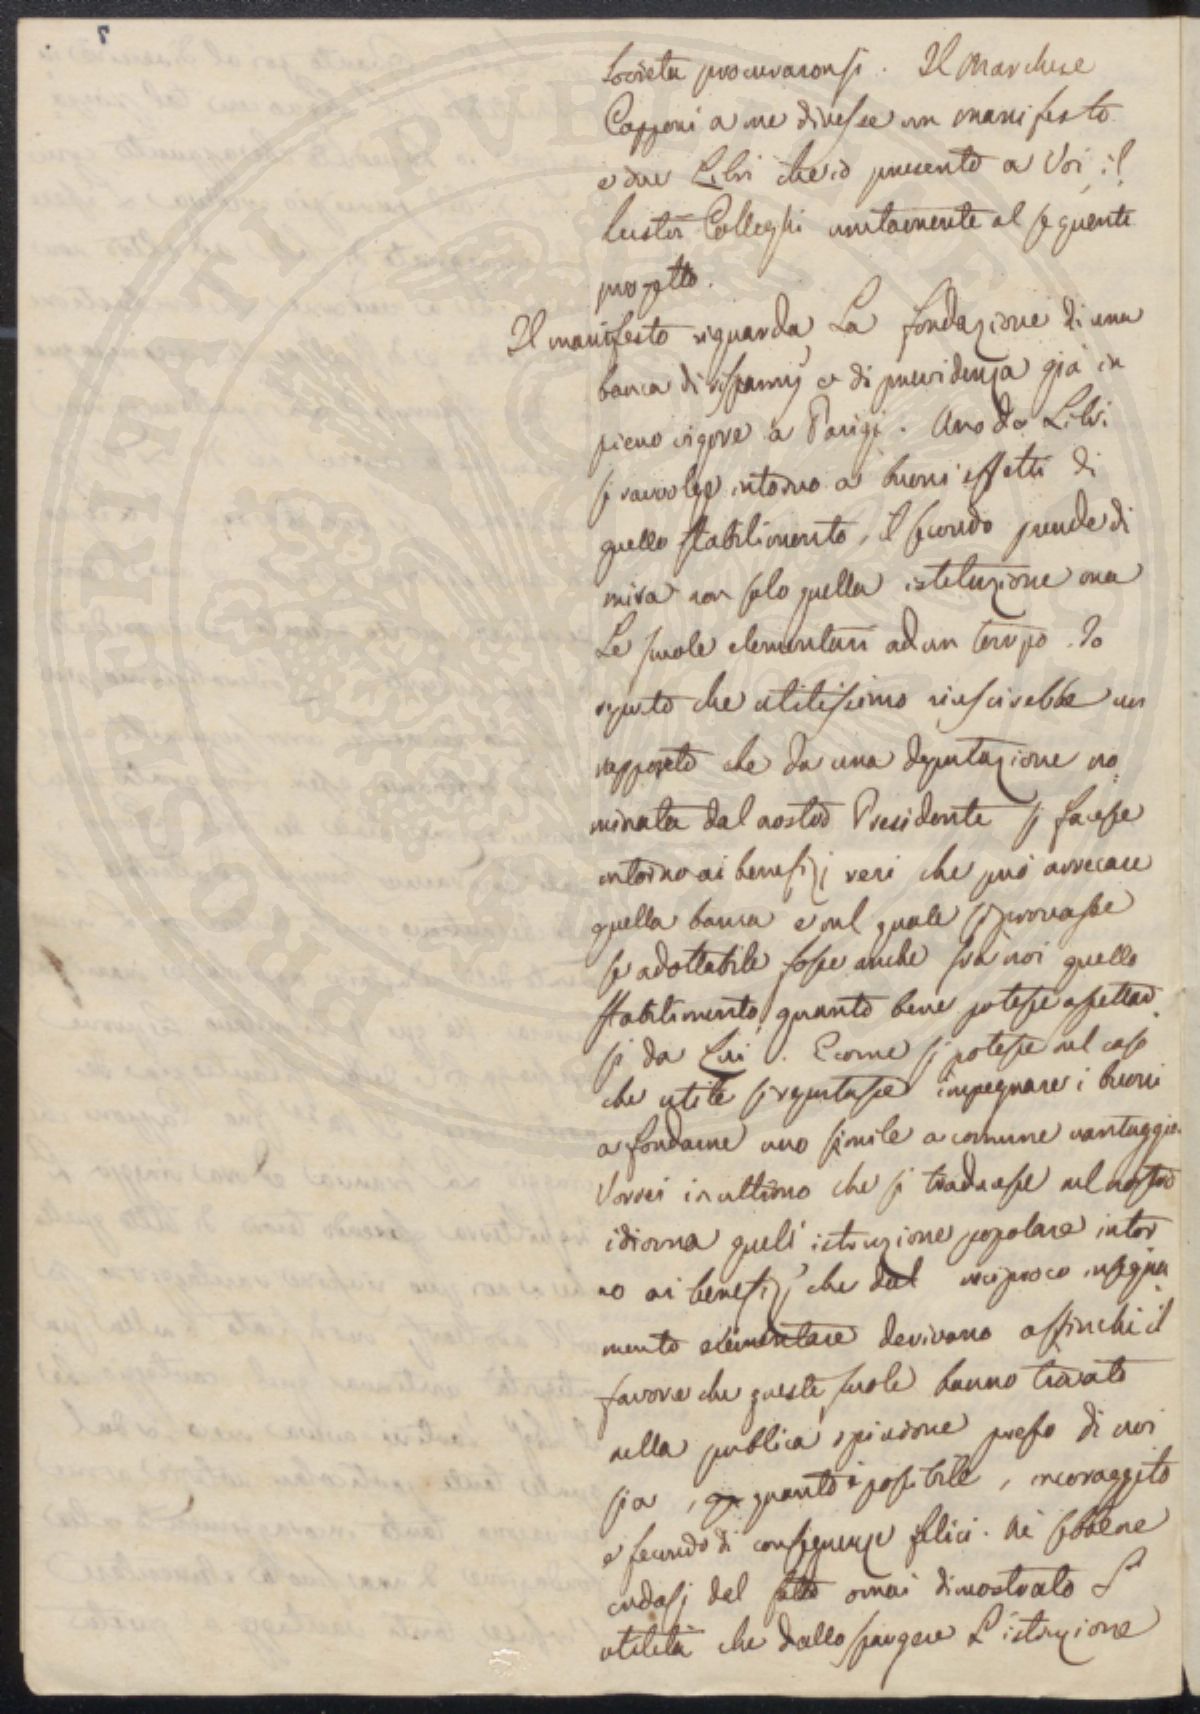 7
Società procuraronsi. Il Marchese
Capponi a me diresse un manifesto
e due Libri che io presento a Voi, il
lustri Colleghi unitamente al seguente
progetto.
Il manifesto riguarda La fondazione di una
banca di risparmj e di previdenza già in
pieno vigore a Parigi. Uno de Libri
si ravvolge intorno a buoni effetti di
quello stabilimento, il secondo prende di
mira non solo quella istituzione ma
Le scuole elementari ad un tempo. Io
reputo che utilissimo riuscirebbe un
rapporto che da una deputazione no=
minata dal nostro Presidente si facesse
intorno ai benefizj veri che può arrecare
quella banca e nel quale si provasse
se adottabile fosse anche fra noi quello
stabilimento, quanto bene potesse aspettar
si da Lui. E come si potesse nel caso
che utile si reputasse impegnare i buoni
a fondarne uno simile a comune vantaggio.
Vorrei in ultimo che si traducesse nel nostro
idioma quell' istruzione popolare intor
no ai benefizj che dal reciproco insegna
mento elementare derivano affinchè il
favore che queste scuole hanno trovato
nella pubblica opinione presso di noi
sia, quanto è possibile, incoraggito
e fecondo di conseguenze felici. Nè sebbene
credasi del fatto omai dimostrato L'
utilità che dallo spargere L'istruzione